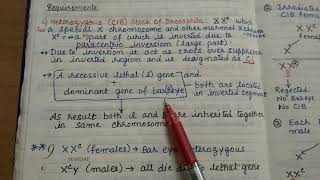 Requirements
1) Heterozygous (ClB) Stock of Drosophila. X Xᶜ which
has a special X chromosome and other normal X chromosome
Xᶜ = → a part of which is inverted due to
paracentric inversion (large part)
→ Due to inversion it acts as cross over suppressor
in inverted region and is designated as C
→ A recessive lethal (l) gene and
dominant gene of bareye
both are located
in inverted segment
As result both l and B are inherited together
in same chromosome
** 1) X Xᶜ (females) → Bar eye heterozygous
SUNDAY
XᶜY (males) → all die due to lethal gene
② Irradiated
ClB female
X Xᶜ
Rejected
No Bareye
No ClB
③
X